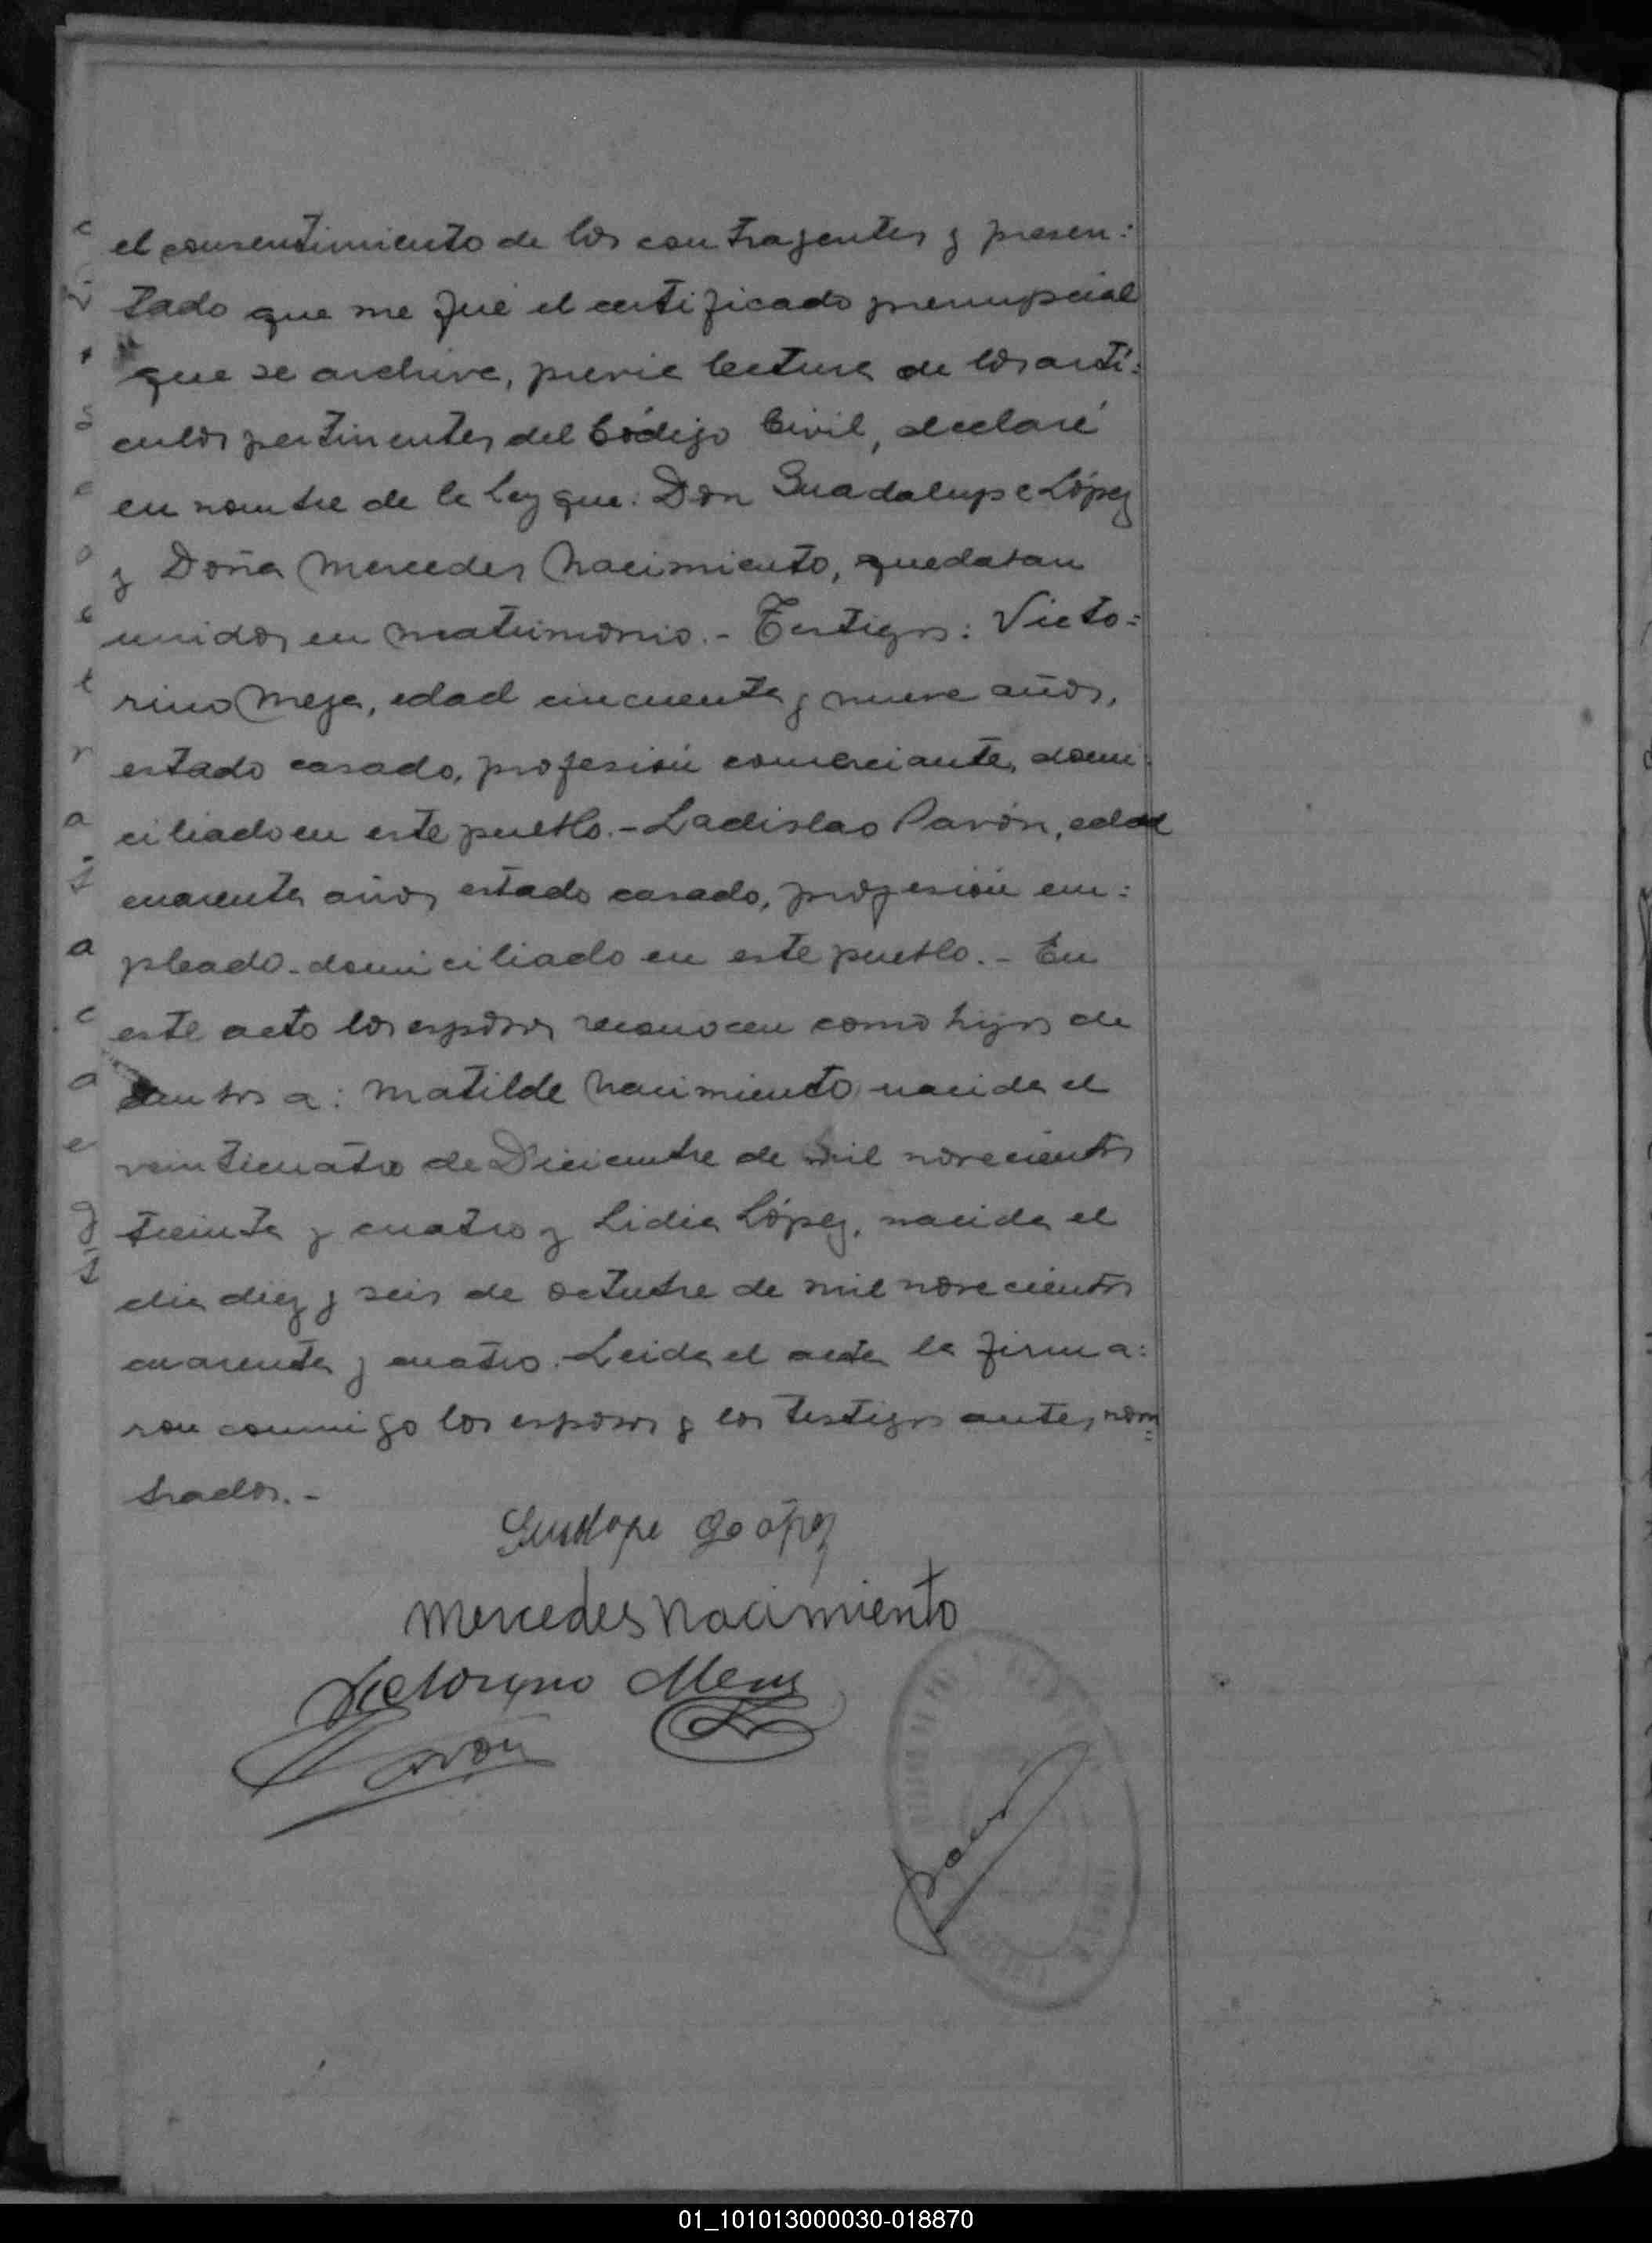 el consentimiento de los contrayentes y presen:
tado que me fué el certificado prenupcial
que se archiva, previa lectura de los artí:
culos pertinentes del Código Civil, declaré
en nombre de la Ley que: Don Guadalupe López
y Doña Mercedes Nacimiento, quedaban
unidos en matrimonio.- Testigos: Victo=
rino Meza, edad cincuenta y nueve años,
estado casado, profesión comerciante, domi:
ciliado en este pueblo.- Ladislao Pavón, edad
cuarenta años, estado casado, profesión em:
pleado. domiciliado en este pueblo.- En
este acto los esposos reconocen como hijos de
ambos a: Matilde Nacimiento nacida el
veinticuatro de Diciembre de mil novecientos
treinta y cuatro y Lidia López, nacida el
día diez y seis de octubre de mil novecientos
cuarenta y cuatro. Leida el acta la firma:
ron conmigo los esposos y los testigos antes nom=
brados.-
Mercedes Nacimiento
Victoryno Meza
Pavón
01_101013000030-018870